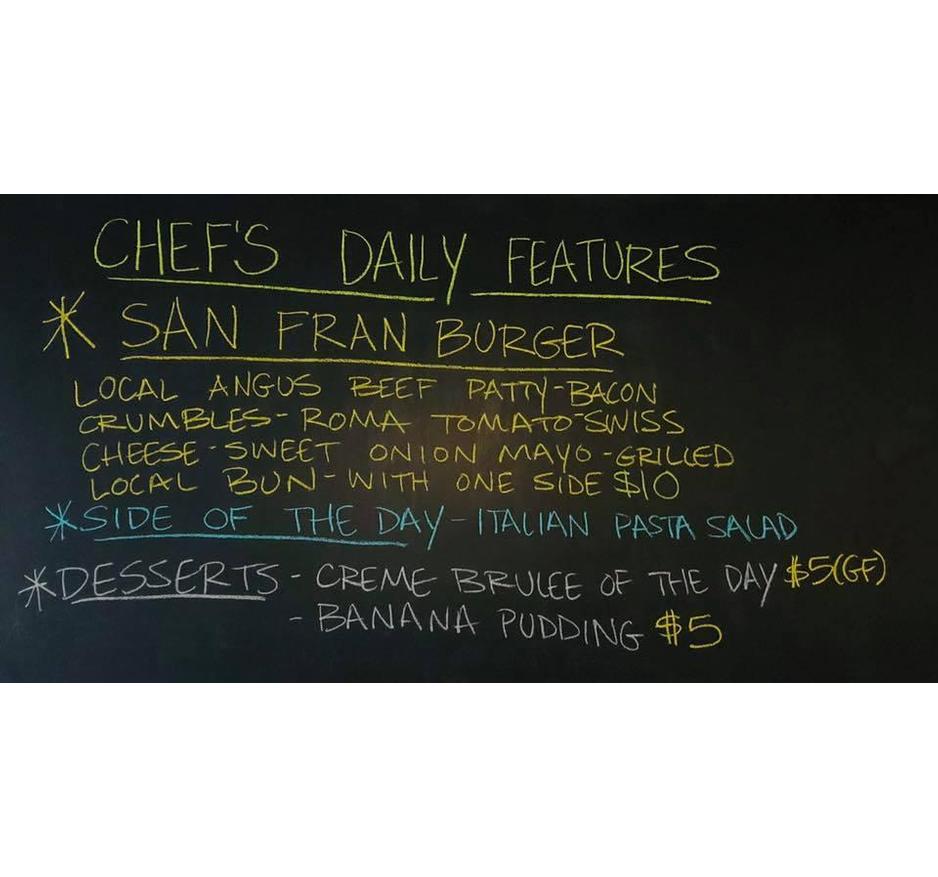 CHEF'S DAILY FEATURES
* SAN FRAN BURGER
LOCAL ANGUS BEEF PATTY-BACON
CRUMBLES-ROMA TOMATO-SWISS
CHEESE-SWEET ONION MAYO-GRILLED
LOCAL BUN-WITH ONE SIDE $10
*SIDE OF THE DAY-ITALIAN PASTA SALAD
*DESSERTS - CREME BRULEE OF THE DAY $5(GF)
- BANANA PUDDING $5